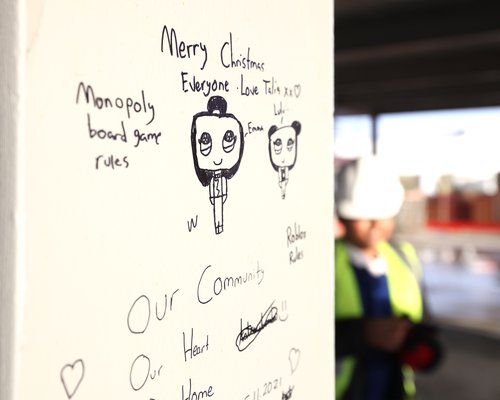 Merry Christmas
Everyone . Love Talia xx
Lulu
Emma
Monopoly
board game
rules
W
Roblox
Rules
Our Community
Our Heart
Home
.11.2021